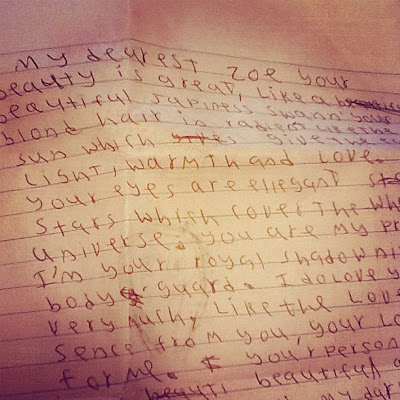 My dearest Zoe your
beauty is great, like a
beautiful Japiness swann your
blond hair is radient like the
sun which gives me
Light, warmth and Love.
your eyes are ellegant
stars which cover the wh
universe. you are my pr
I'm your royal shadow
body guard. I do love y
very much, Like the Lov
sence from you, your Lo
for me. your person
beautiful a
my dar